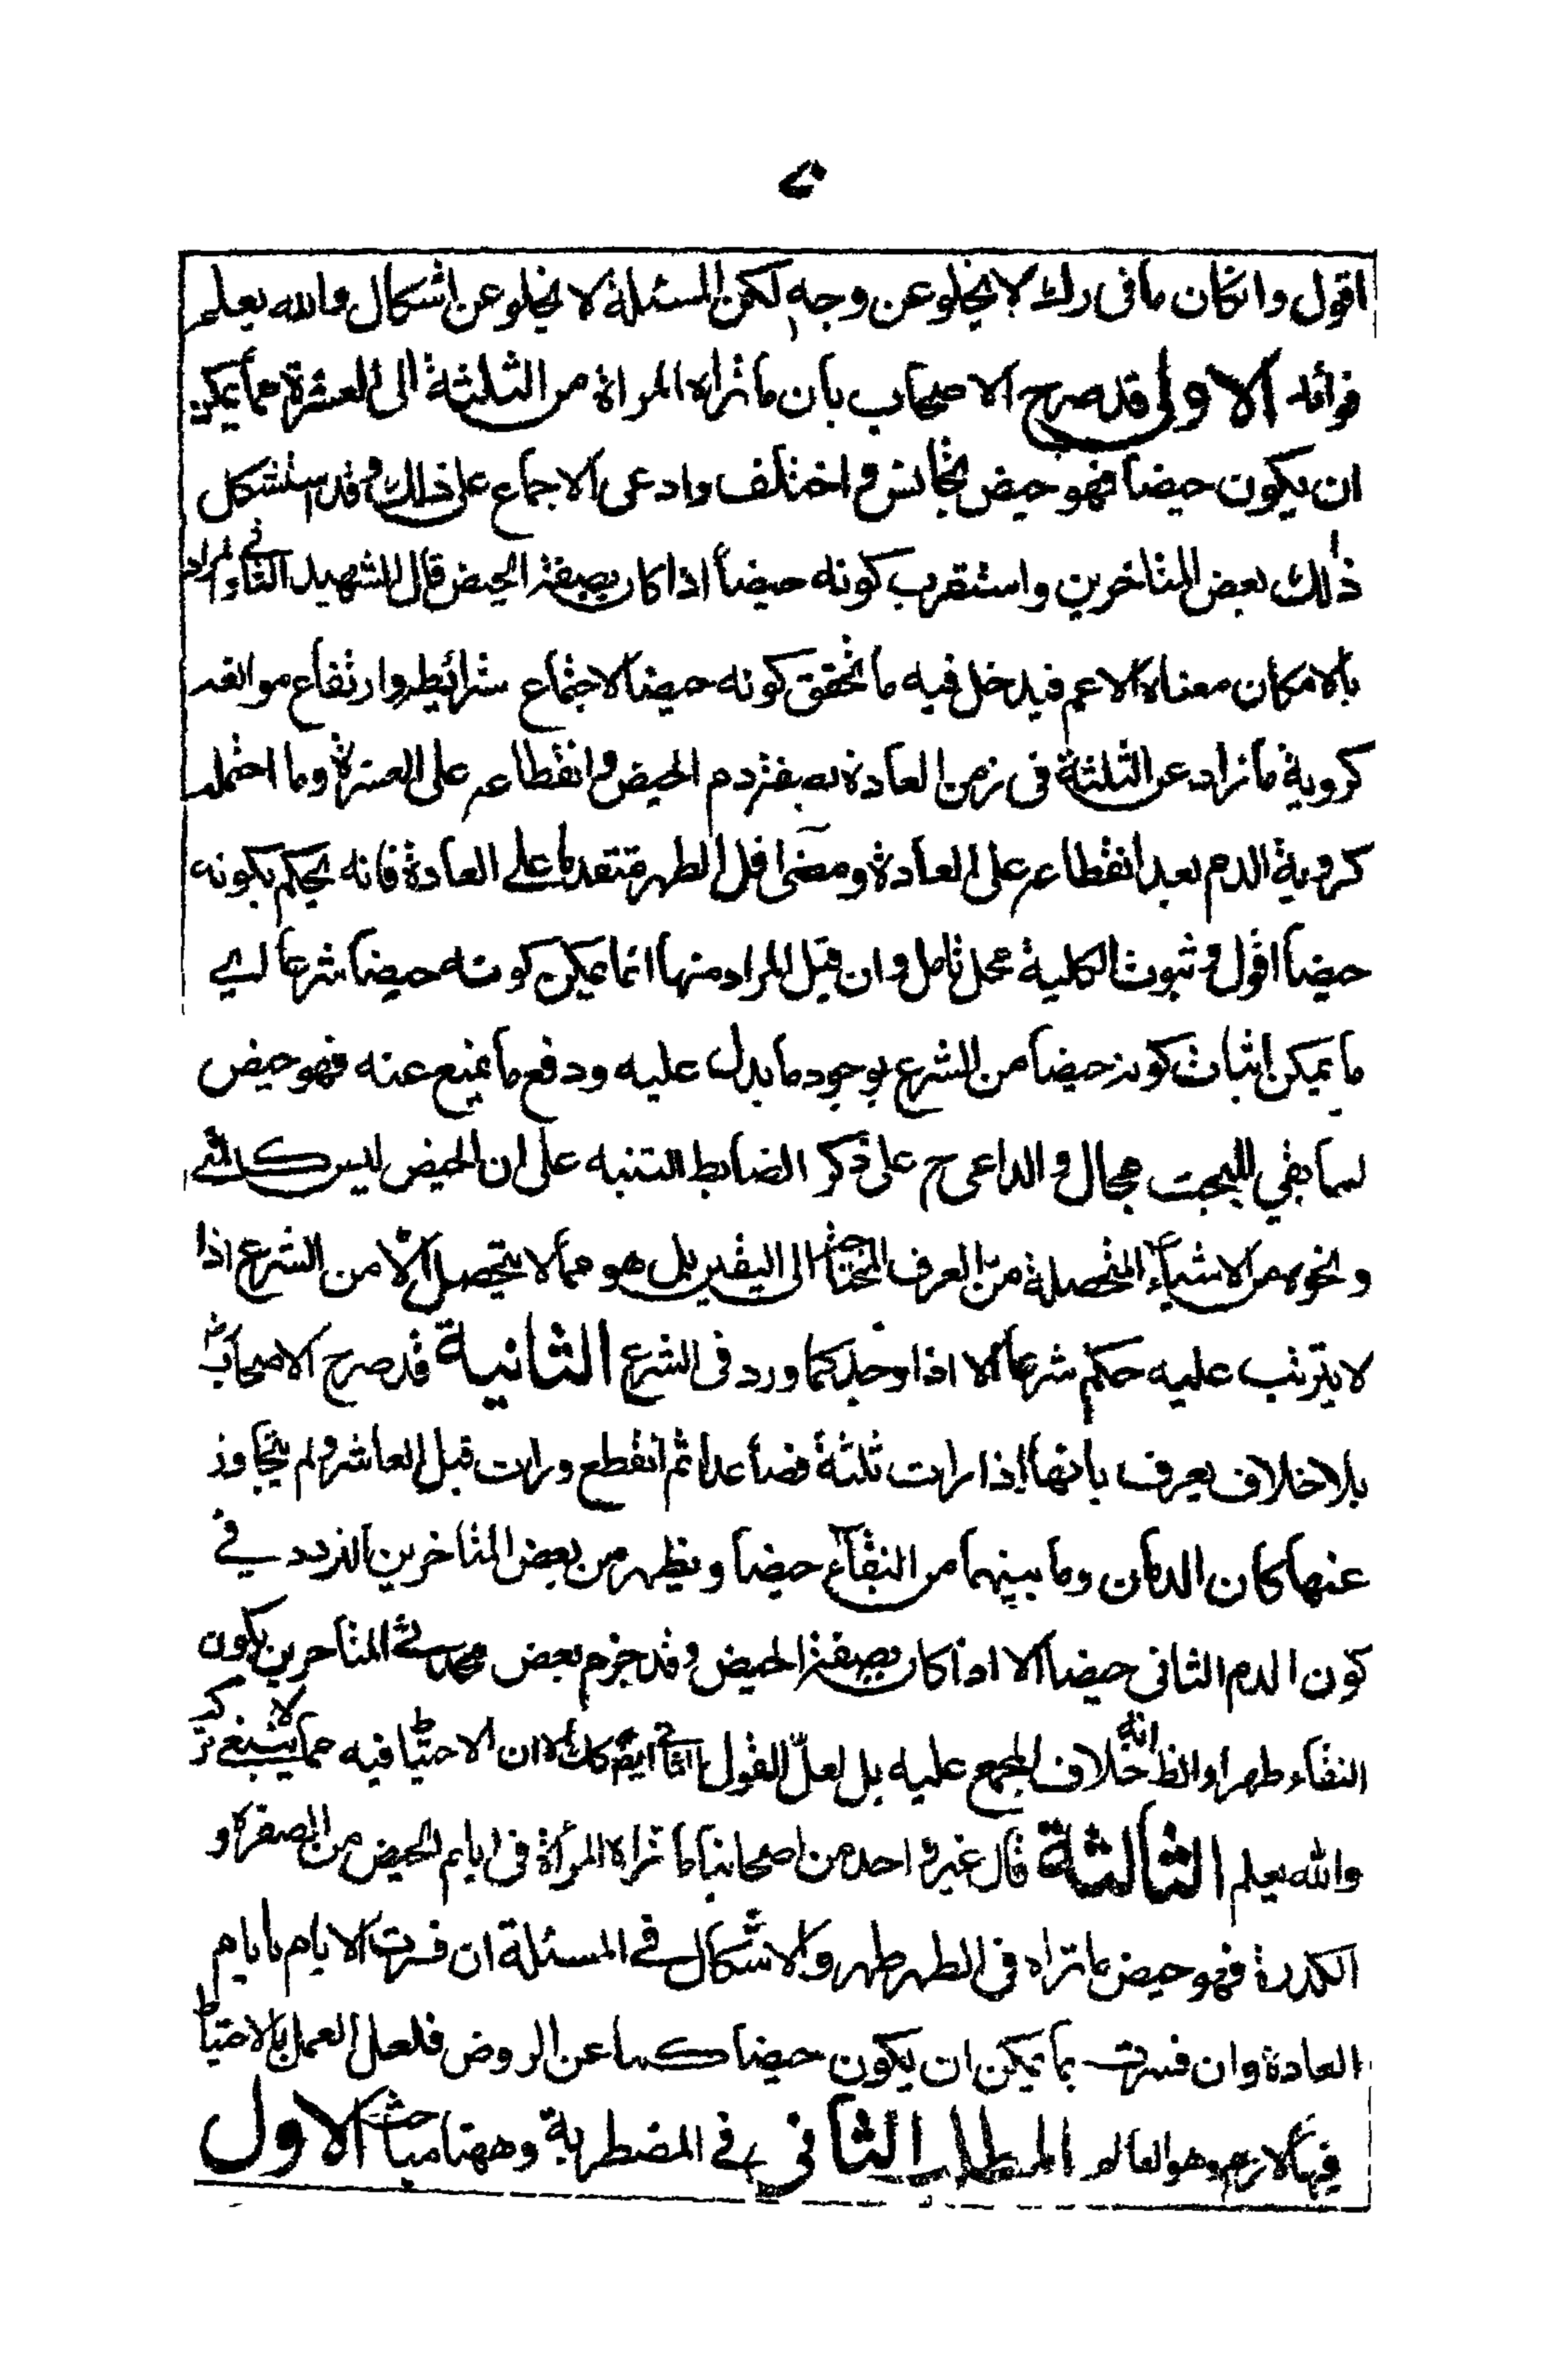 اقول وانكان مافى رك لا يخلو عن وجه لكن المسئلة لا يخلو عن اشكال والله يعلم
فوائد الاولى قد صرح الاصحاب بان ما تراه المراة من الثلثة الى العشرة مما يمكن
ان يكون حيضا فهو حيض تجانس و اختلف وادعى الاجماع على ذلك وقد استشكل
ذلك بعض المتاخرين واستقرب كونه حيضا اذا كان بصفة الحيض قال الشهيد الثانى المراد
بالامكان معناه الاعم فيدخل فيه ما تحقق كونه حيضا لاجتماع شرائطه وارتفاع موانعه
كروية مازاد عن الثلثة فى زمن العادة بصفة دم الحيض و انقطاعه على العشرة وما احتمله
كروية الدم بعد انقطاعه على العادة ومضى اقل الطهر متقدما على العادة فانه يحكم بكونه
حيضا اقول و ثبوت الكلية محل تامل و ان قيل المراد منها انما يمكن كونه حيضا شرعا اى
ما يمكن اثبات كونه حيضا من الشرع بوجود ما يدل عليه ودفع ما يمنع عنه فهو حيض
لما بقى للبحث مجال و الداعى ح على ذكر الضابط التنبه على ان الحيض ليس
ونحوه من الاشياء المتحصلة من العرف المحتاجة الى اليقين بل هو مما لا يتحصل الا من الشرع اذا
لا يترتب عليه حكم شرعا الا اذا وجد كما ورد فى الشرع الثانية قد صرح الاصحاب
بلا خلاف يعرف بانها اذا رات ثلثة فصاعدا ثم انقطع ورات قبل العاشر و لم يتجاوز
عنها كان الدمان وما بينهما من النقاء حيضا ويظهر من بعض المتاخرين التردد فى
كون الدم الثانى حيضا الا اذا كان بصفة الحيض و قد جزم بعض المتاخرين بكون
النقاء طهرا والظ انه خلاف المجمع عليه بل لعل القول الثانى ايضا كك الا ان الاحتياط فيه مما لا ينبغى تركه
والله يعلم الثالثة قال غير واحد من اصحابنا ما تراه المراة فى ايام الحيض من الصفرة و
الكدرة فهو حيض ما تراه فى الطهر طهر ولا اشكال فى المسئلة ان فسرت الايام بايام
العادة وان فسرت بما يمكن ان يكون حيضا كما عن الروض فلعل العمل بالاحتياط
فيها لازم وهو العالم المطلب الثانى فى المضطربة وههنا مباحث الاول